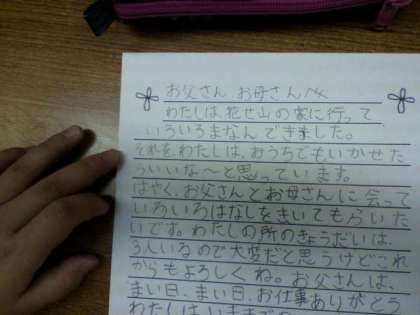 お父さん お母さんへ
わたしは花せ山の家に行って
いろいろまなんできました。
それをわたしは、おうちでもいかせた
らいいな〜と思っています。
はやく、お父さんとお母さんに会って
いろいろはなしをきいてもらいた
いです。わたしの所のきょうだいは、
3人いるので大変だと思うけどこれ
からもよろしくね。お父さんは、
まい日、まい日、お仕事ありがとう
わたしは